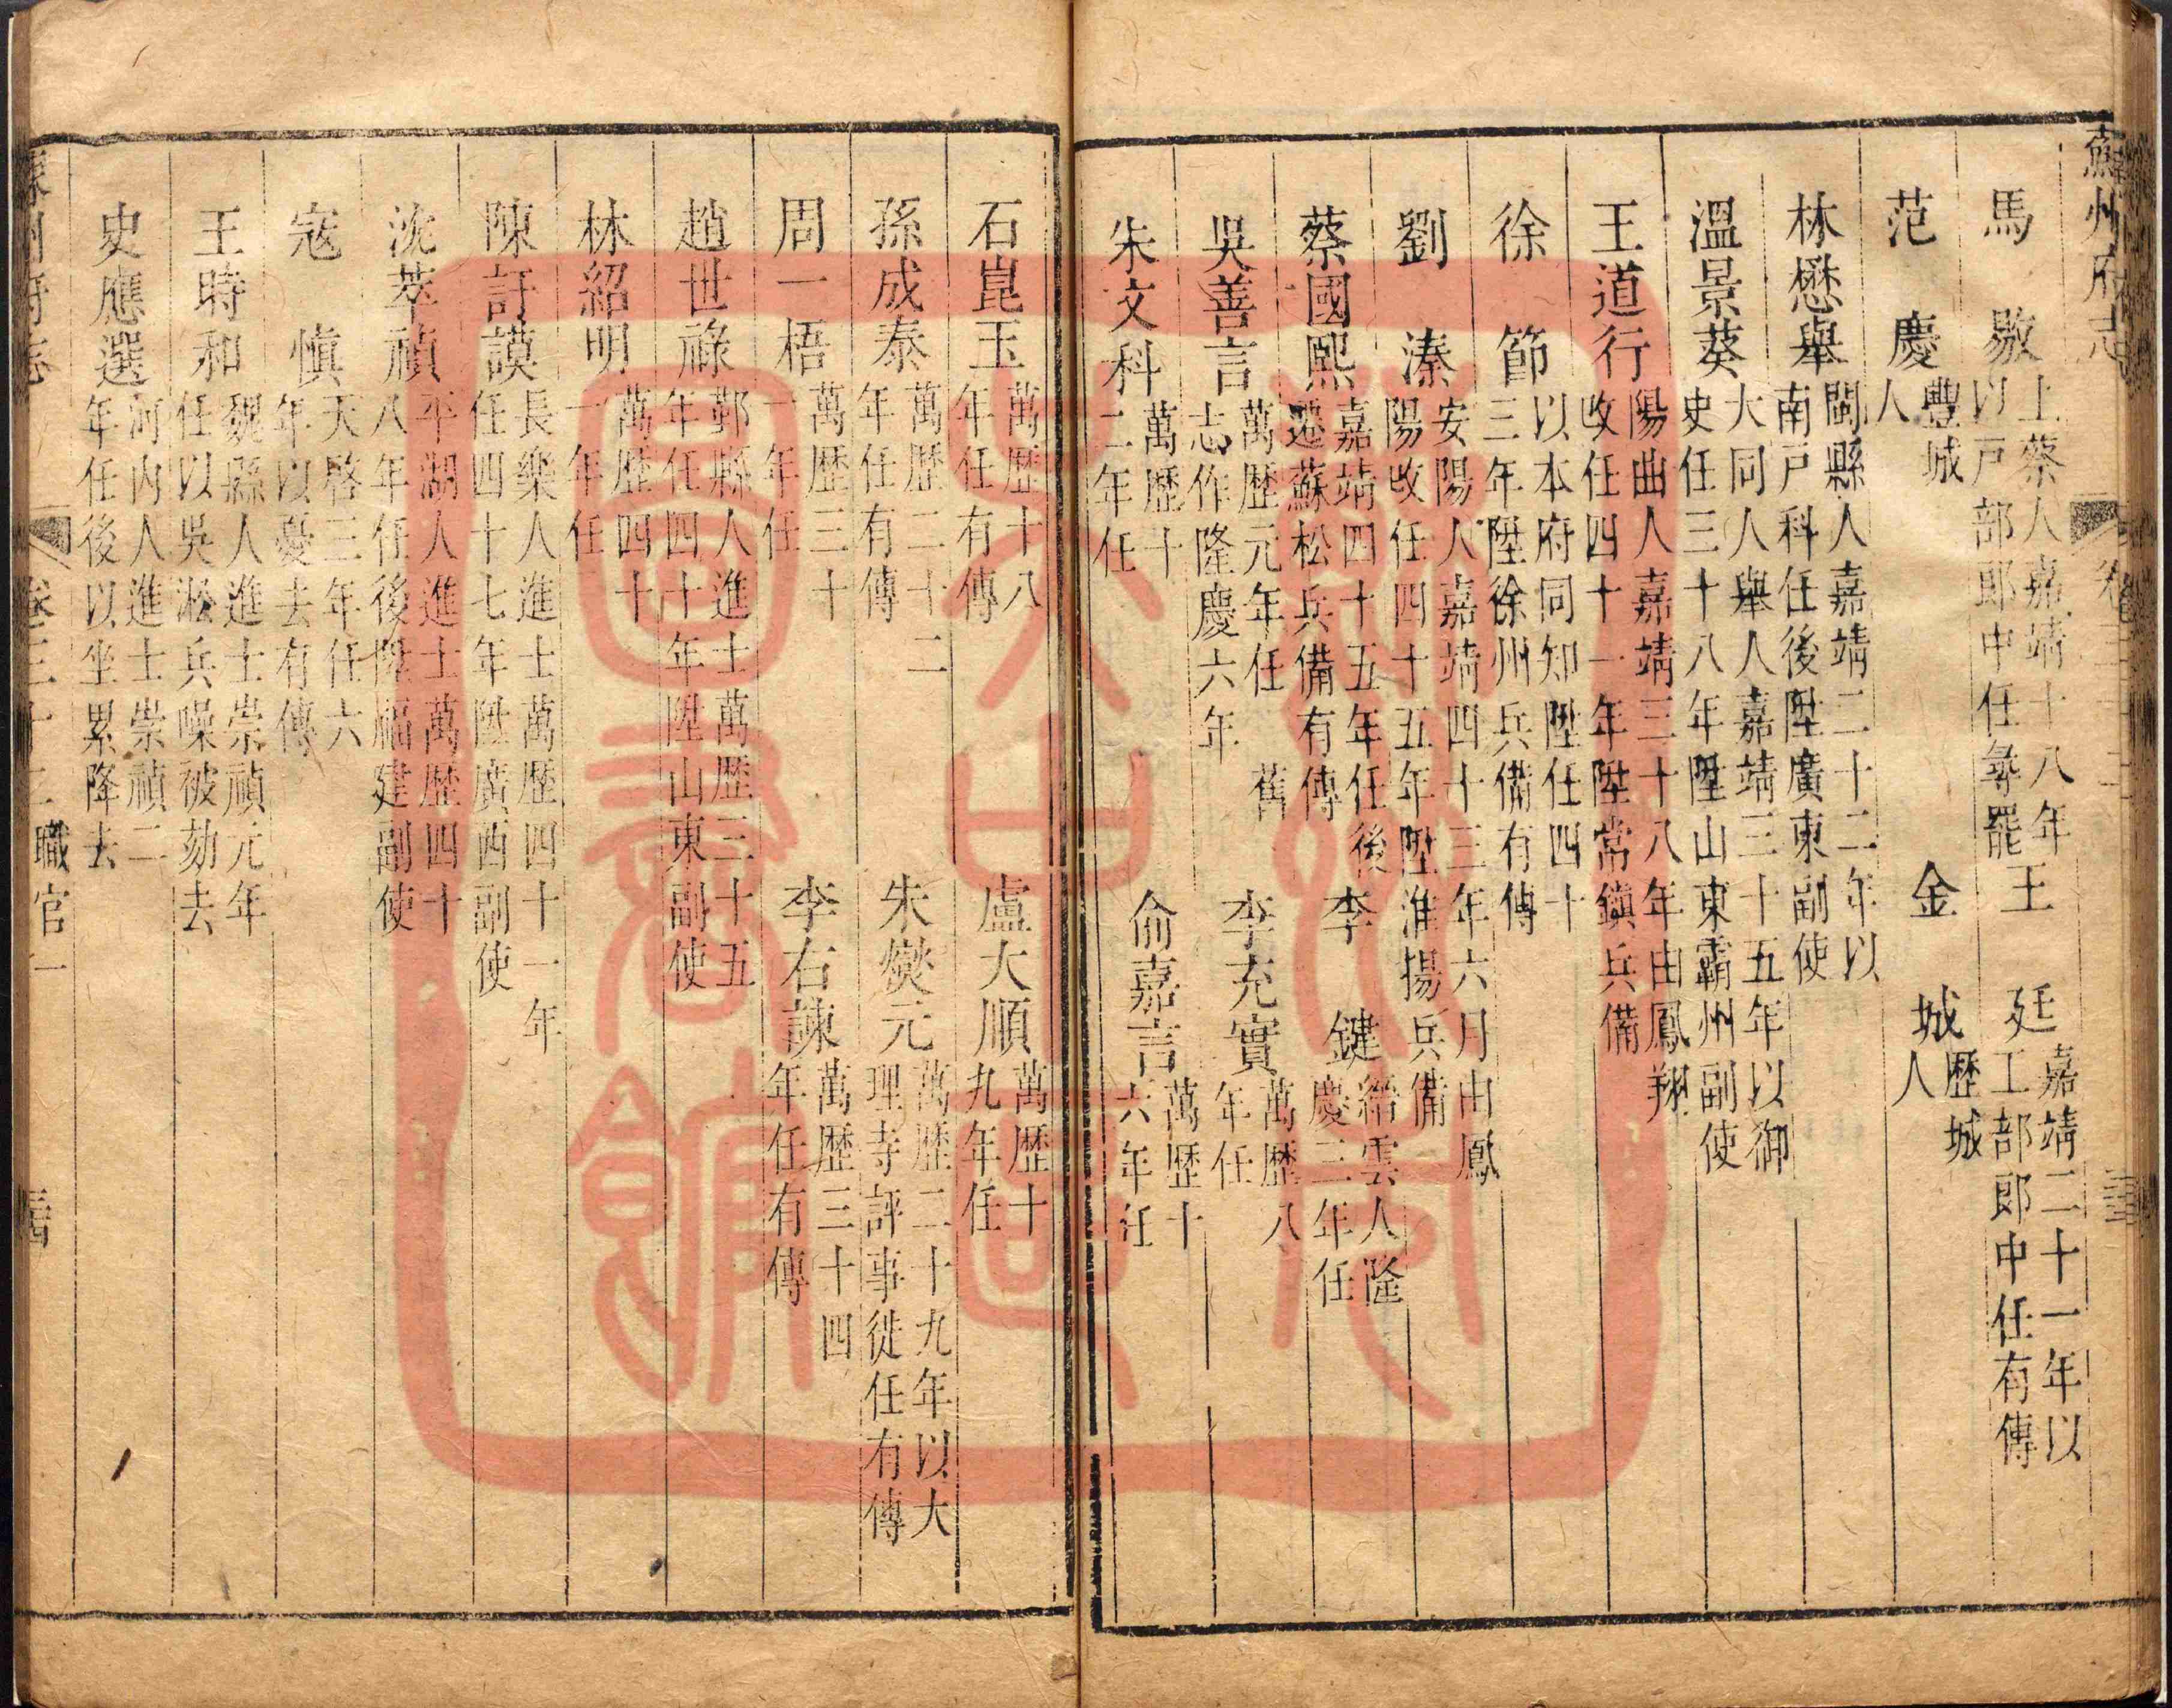 蘇州府志 卷三十二
馬敭 上蔡人嘉靖十八年以戸部郎中任尋罷 王廷 嘉靖二十一年以工部郎中任有傳
范慶 豐城人 金城 歷城人
林懋舉 閩縣人嘉靖二十二年以南戸科任後陞廣東副使
溫景葵 大同人舉人嘉靖三十五年以御史任三十八年陞山東霸州副使
王道行 陽曲人嘉靖三十八年由鳳翔改任四十一年陞常鎮兵備
徐節 以本府同知陞任四十三年陞徐州兵備有傳
劉溱 安陽人嘉靖四十三年六月由鳳陽改任四十五年陞淮揚兵備
蔡國熙 嘉靖四十五年任後遷蘇松兵備有傳 李鍵 縉雲人隆慶三年任
吳善言 萬歷元年任舊志作隆慶六年 李充實 萬歷八年任
朱文科 萬歷十二年任 俞嘉言 萬歷十六年任
石崑玉 萬歷十八年任有傳 盧大順 萬歷十九年任
孫成泰 萬歷二十二年任有傳 朱燮元 萬歷二十九年以大理寺評事徙任有傳
周一梧 萬歷三十一年任 李右諫 萬歷三十四年任有傳
趙世祿 鄞縣人進士萬歷三十五年任四十年陞山東副使
林紹明 萬歷四十一年任
陳訏謨 長樂人進士萬歷四十一年任四十七年陞廣西副使
沈萃禎 平湖人進士萬歷四十八年任後陞福建副使
寇慎 天啓三年任六年以憂去有傳
王時和 魏縣人進士崇禎元年任以吳淞兵噪被劾去
史應選 河內人進士崇禎二年任後以坐累降去
蘇州府志 卷三十二 職官一